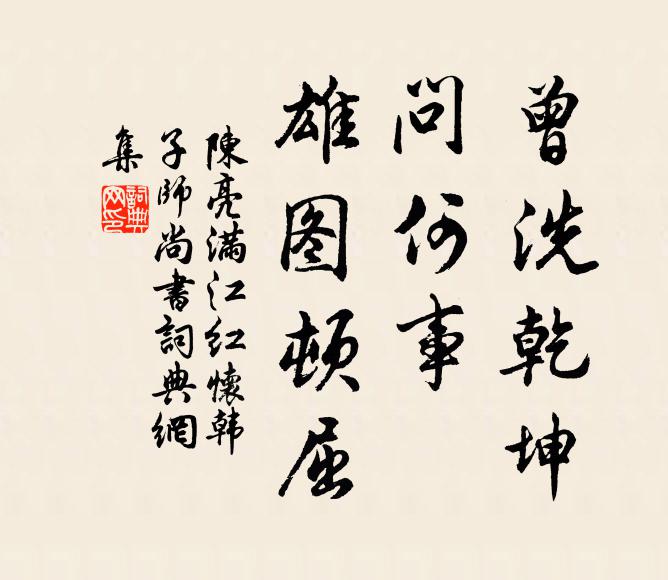 曾洗乾坤
问何事
雄图顿屈
陳亮滿江红懷韩
子师尚書詞典網
集
詞典网印